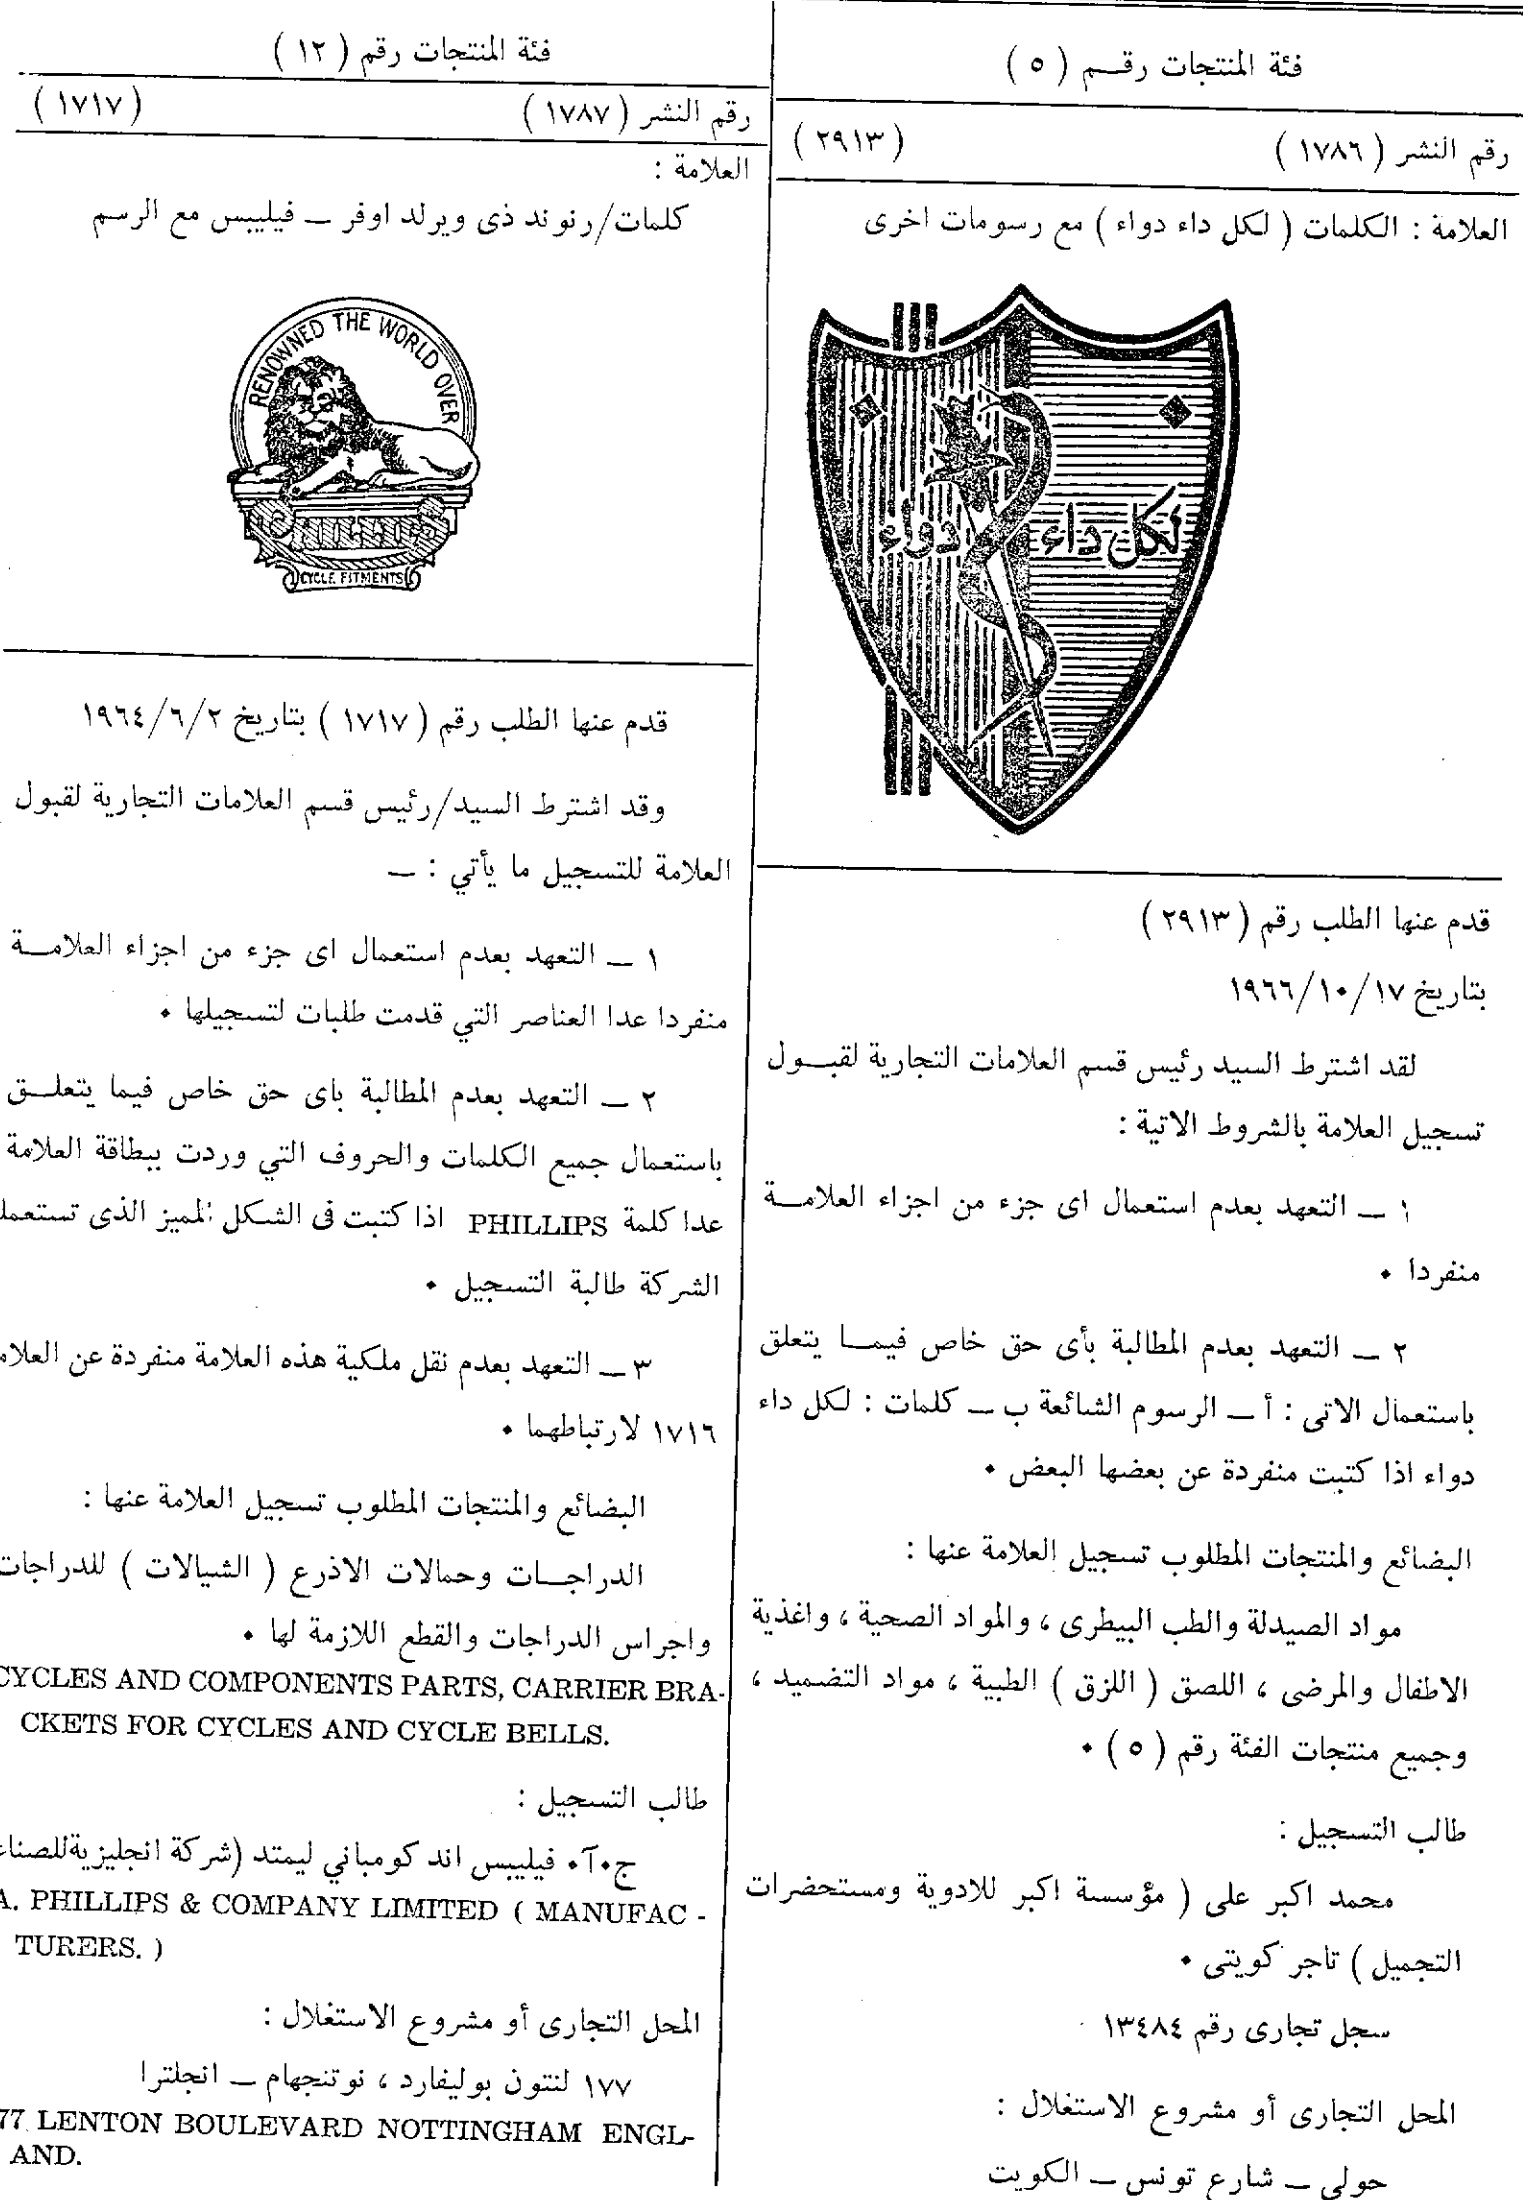 فئة المنتجات رقـــم ( ٥ )
رقم النشر ( ١٧٨٦ ) ( ٢٩١٣ )
العلامة : الكلمات ( لكل داء دواء ) مع رسومات اخرى
لكل داء دواء
قدم عنها الطلب رقم ( ٢٩١٣ )
بتاريخ ١٩٦٦/١٠/١٧
لقد اشترط السيد رئيس قسم العلامات التجارية لقبـــول
تسجيل العلامة بالشروط الاتية :
١ ــ التعهد بعدم استعمال اى جزء من اجزاء العلامـــة
منفردا ٠
٢ ــ التعهد بعدم المطالبة بأى حق خاص فيمـــا يتعلق
باستعمال الاتى : أ ــ الرسوم الشائعة ب ــ كلمات : لكل داء
دواء اذا كتبت منفردة عن بعضها البعض ٠
البضائع والمنتجات المطلوب تسجيل العلامة عنها :
مواد الصيدلة والطب البيطرى ، والمواد الصحية ، واغذية
الاطفال والمرضى ، اللصق ( اللزق ) الطبية ، مواد التضميد ،
وجميع منتجات الفئة رقم ( ٥ ) ٠
طالب التسجيل :
محمد اكبر على ( مؤسسة اكبر للادوية ومستحضرات
التجميل ) تاجر كويتى ٠
سجل تجارى رقم ١٣٤٨٤
المحل التجارى أو مشروع الاستغلال :
حولى ــ شارع تونس ــ الكويت
فئة المنتجات رقم ( ١٢ )
رقم النشر ( ١٧٨٧ ) ( ١٧١٧ )
العلامة :
كلمات/رنوند ذى ويرلد اوفر ــ فيليبس مع الرسم
RENOWNED THE WORLD OVER
PHILLIPS
CYCLE FITMENTS
قدم عنها الطلب رقم ( ١٧١٧ ) بتاريخ ١٩٦٤/٦/٢
وقد اشترط السيد/رئيس قسم العلامات التجارية لقبول
العلامة للتسجيل ما يأتي : ــ
١ ــ التعهد بعدم استعمال اى جزء من اجزاء العلامـــة
منفردا عدا العناصر التي قدمت طلبات لتسجيلها ٠
٢ ــ التعهد بعدم المطالبة باى حق خاص فيما يتعلـــق
باستعمال جميع الكلمات والحروف التي وردت ببطاقة العلامة
عدا كلمة PHILLIPS اذا كتبت فى الشكل المميز الذى تستعمل
الشركة طالبة التسجيل ٠
٣ ــ التعهد بعدم نقل ملكية هذه العلامة منفردة عن العلام
١٧١٦ لارتباطهما ٠
البضائع والمنتجات المطلوب تسجيل العلامة عنها :
الدراجـــات وحمالات الاذرع ( الشيالات ) للدراجات
واجراس الدراجات والقطع اللازمة لها ٠
CYCLES AND COMPONENTS PARTS, CARRIER BRA-
CKETS FOR CYCLES AND CYCLE BELLS.
طالب التسجيل :
ج٠آ٠ فيليبس اند كومباني ليمتد (شركة انجليزية للصناع
A. PHILLIPS & COMPANY LIMITED ( MANUFAC -
TURERS. )
المحل التجارى أو مشروع الاستغلال :
١٧٧ لنتون بوليفارد ، نوتنجهام ــ انجلترا
77 LENTON BOULEVARD NOTTINGHAM ENGL-
AND.